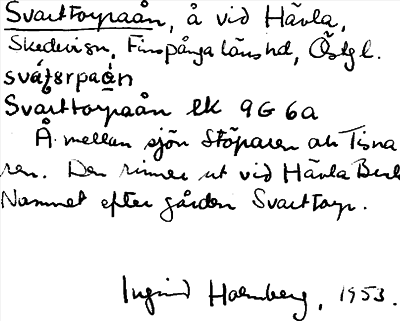 Svarttorpaån, å vid Hävla,
Skedevi sn, Finspånga läns hd, Östgl.
svát̬ɛrpaə̀n
Svarttorpaån ek 9G 6a
Å mellan sjön Stöparen och Tisna
ren. Den rinner ut vid Hävla Bruk
Namnet efter gården Svarttorp.
Ingrid Holmberg, 1953.